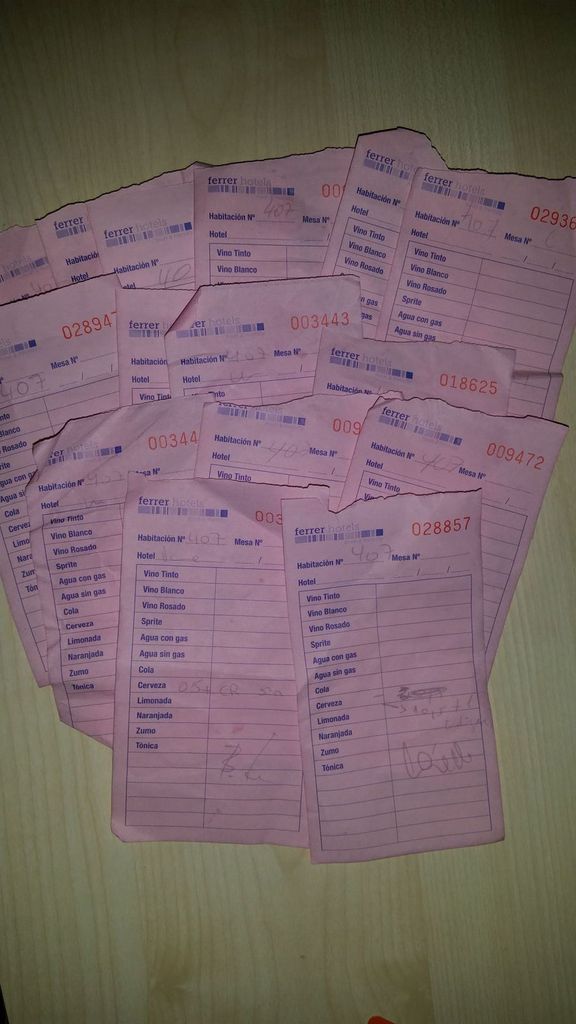 ferrer hotels
Habitación Nº 40
ferrer
Habitación Nº
Hotel
ferrer hotels
Habitación Nº 40
Hotel
ferrer hotels
00
Habitación Nº 407 Mesa Nº
Hotel / /
Vino Tinto
Vino Blanco
ferrer hotels
Habitación Nº
Hotel
Vino Tinto
Vino Blanco
Vino Rosado
Sprite
Agua con gas
ferrer hotels
0293
Habitación Nº 407 Mesa Nº
Hotel / /
Vino Tinto
Vino Blanco
Vino Rosado
Sprite
Agua con gas
Agua sin gas
02894
407 Mesa Nº
ferrer
Habitación
Hotel
Vino Tinto
rer hotels
003443
Habitación Nº 407 Mesa Nº
Hotel
ferrer hotels
018625
Habitación
00344
Habitación Nº 407 Mesa
Hotel
Vino Tinto
Vino Blanco
Vino Rosado
Sprite
Agua con gas
Agua sin gas
Cola
Cerveza
Limonada
Naranjada
Zumo
Tónica
ferrer hotels
009
Habitación Nº 40 Mesa
Hotel
Vino Tinto
ferrer hotels
009472
Habitación Nº 407 Mesa Nº
Hotel / /
Vino Tinto
ferrer hotels
003
Habitación Nº 407 Mesa Nº
Hotel /
Vino Tinto
Vino Blanco
Vino Rosado
Sprite
Agua con gas
Agua sin gas
Cola
Cerveza
Limonada
Naranjada
Zumo
Tónica
ferrer hotels
028857
Habitación Nº 407 Mesa Nº
Hotel / /
Vino Tinto
Vino Blanco
Vino Rosado
Sprite
Agua con gas
Agua sin gas
Cola
Cerveza
Limonada
Naranjada
Zumo
Tónica